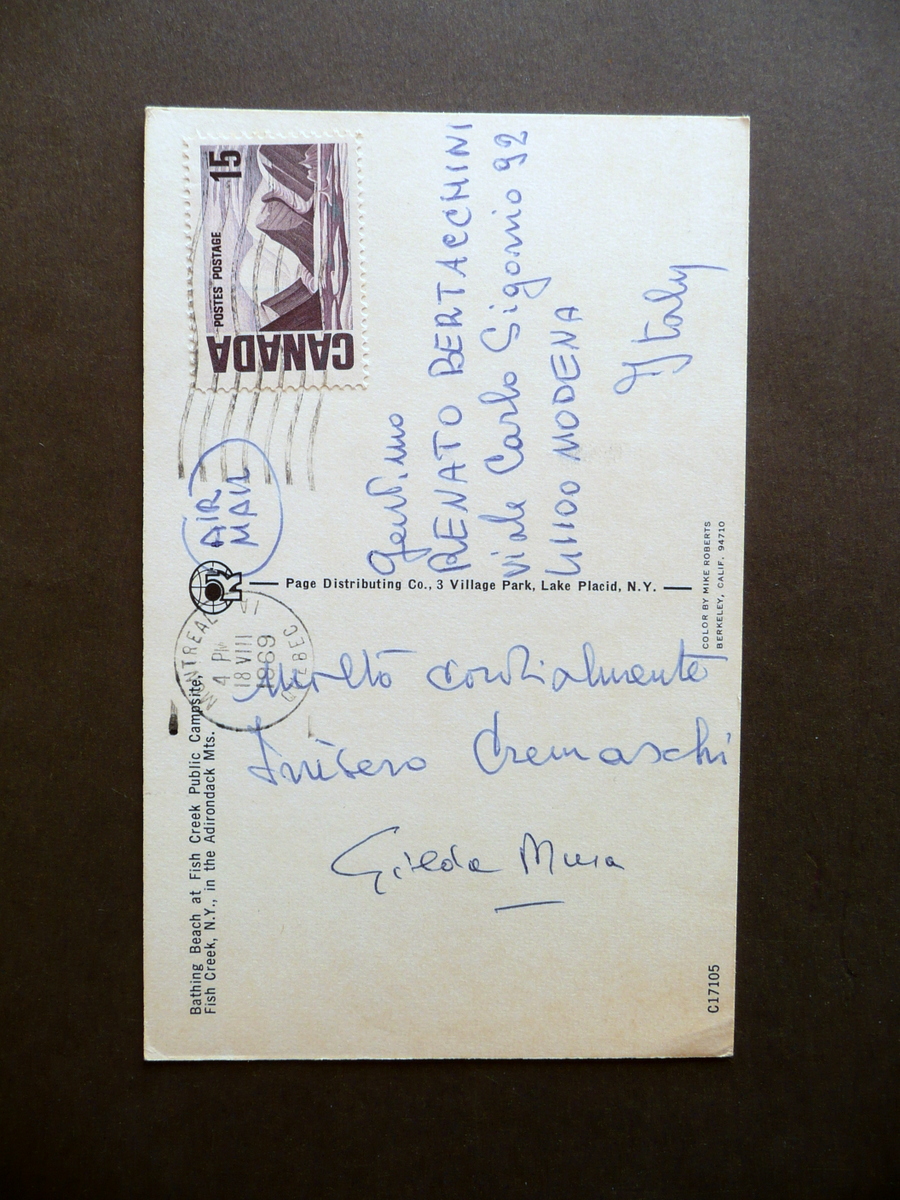 Bathing Beach at Fish Creek Public Campsite,
Fish Creek, N.Y., in the Adirondack Mts.
molto cordialmente
Inìsero Cremaschi
Gilda Musa
C17105
MONTREAL
4 PM
18 VIII
1969
QUEBEC
Page Distributing Co., 3 Village Park, Lake Placid, N.Y.
AIR
MAIL
15
POSTES POSTAGE
CANADA
Gent.mo
RENATO BERTACCHINI
viale Carlo Sigonio 92
41100 MODENA
Italy
COLOR BY MIKE ROBERTS
BERKELEY, CALIF. 94710